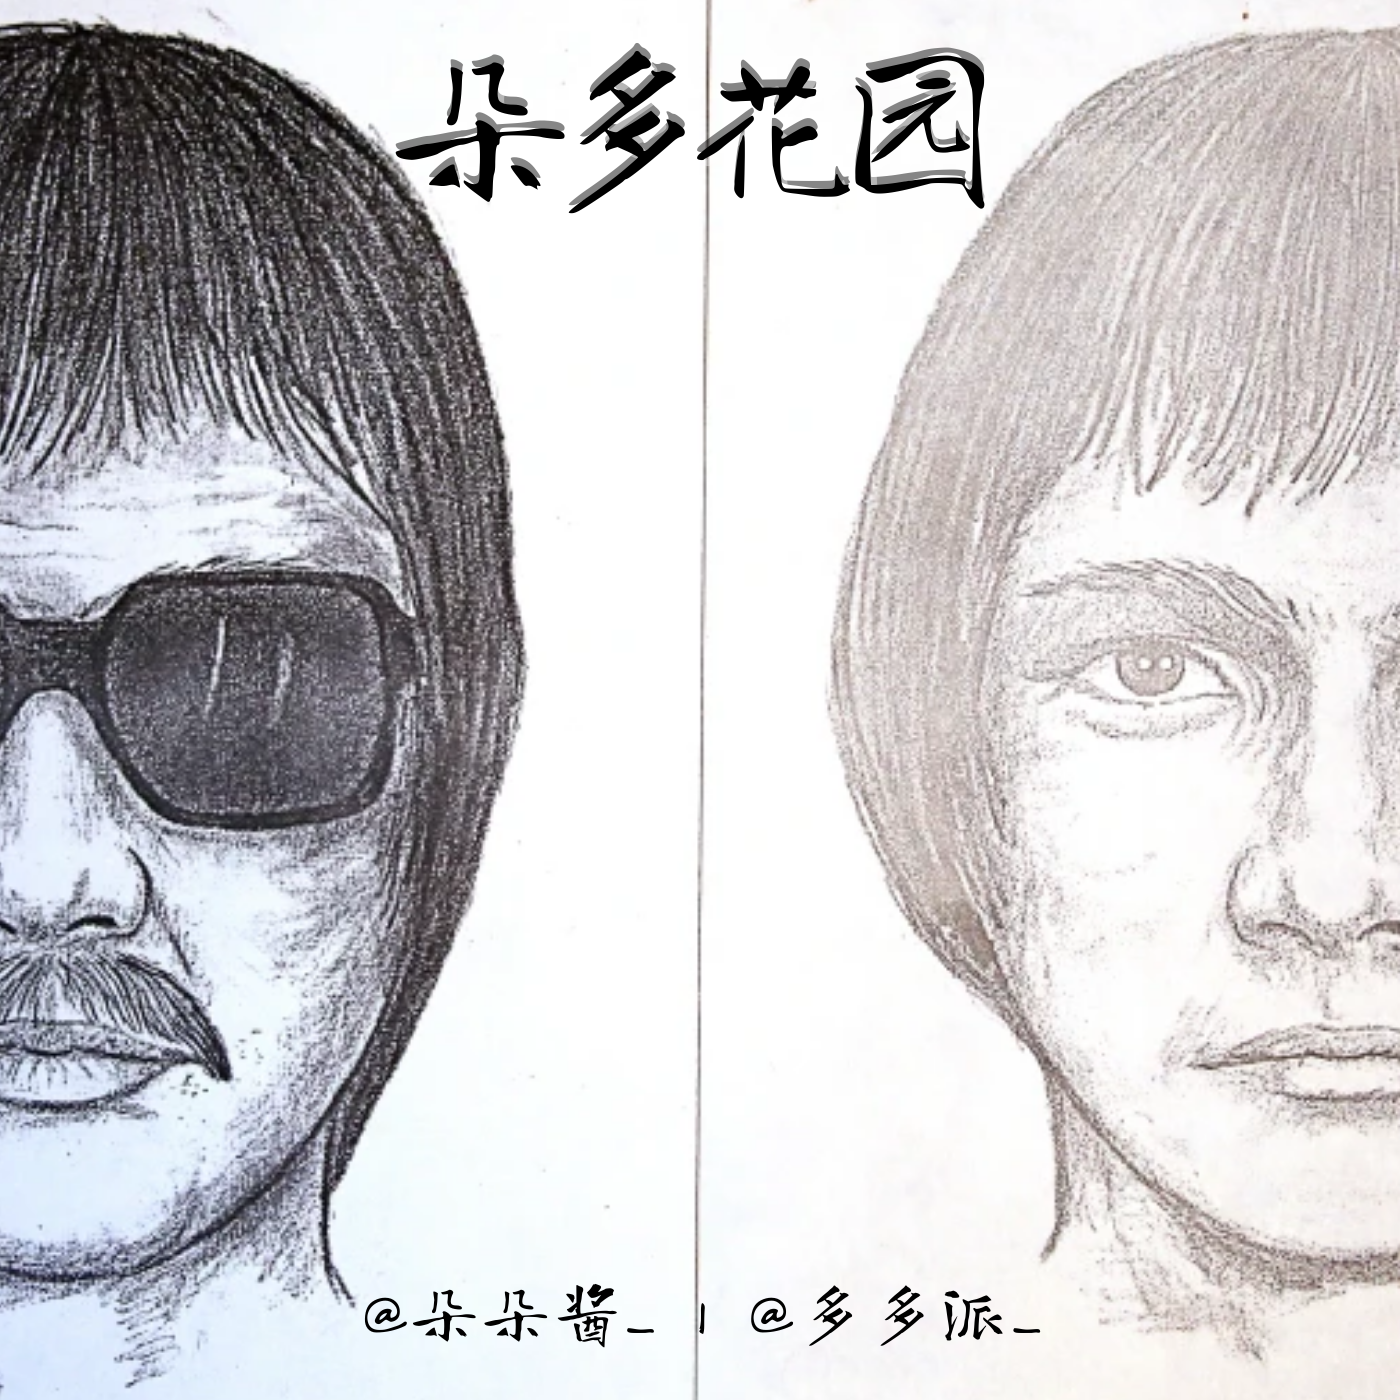 朵多花园
@朵朵酱_ | @多多派_